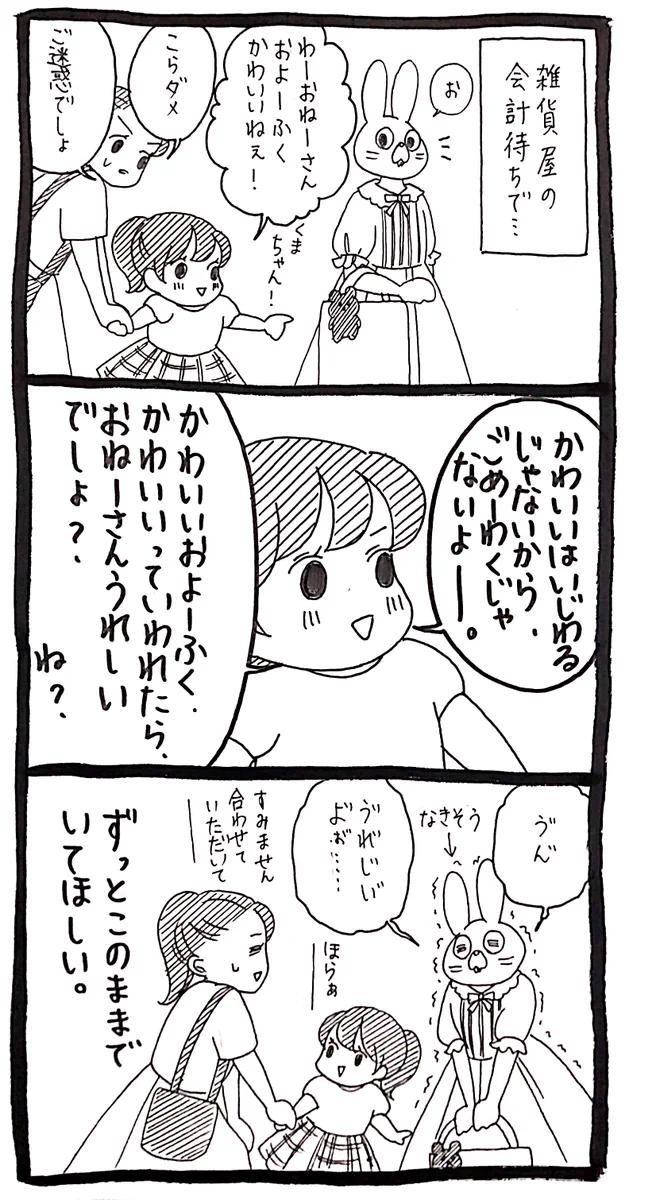 雑貨屋の
会計待ちで…
お
わーおねーさん
おようーふく
かわいいねぇ！
くま
ちゃん！
こらダメ
ご迷惑でしょ
かわいいはいじわる
じゃないから、
ごめーわくじゃ
ないよー。
かわいいおよーふく、
かわいいっていわれたら、
おねーさんうれしい
でしょ？、
ね？、
ゔん゙
なきそう
ゔれ゙じい゙
よ゙ぉ゙……
すみません
合わせて
いただいて
ほらぁ
ずっとこのままで
いてほしい。